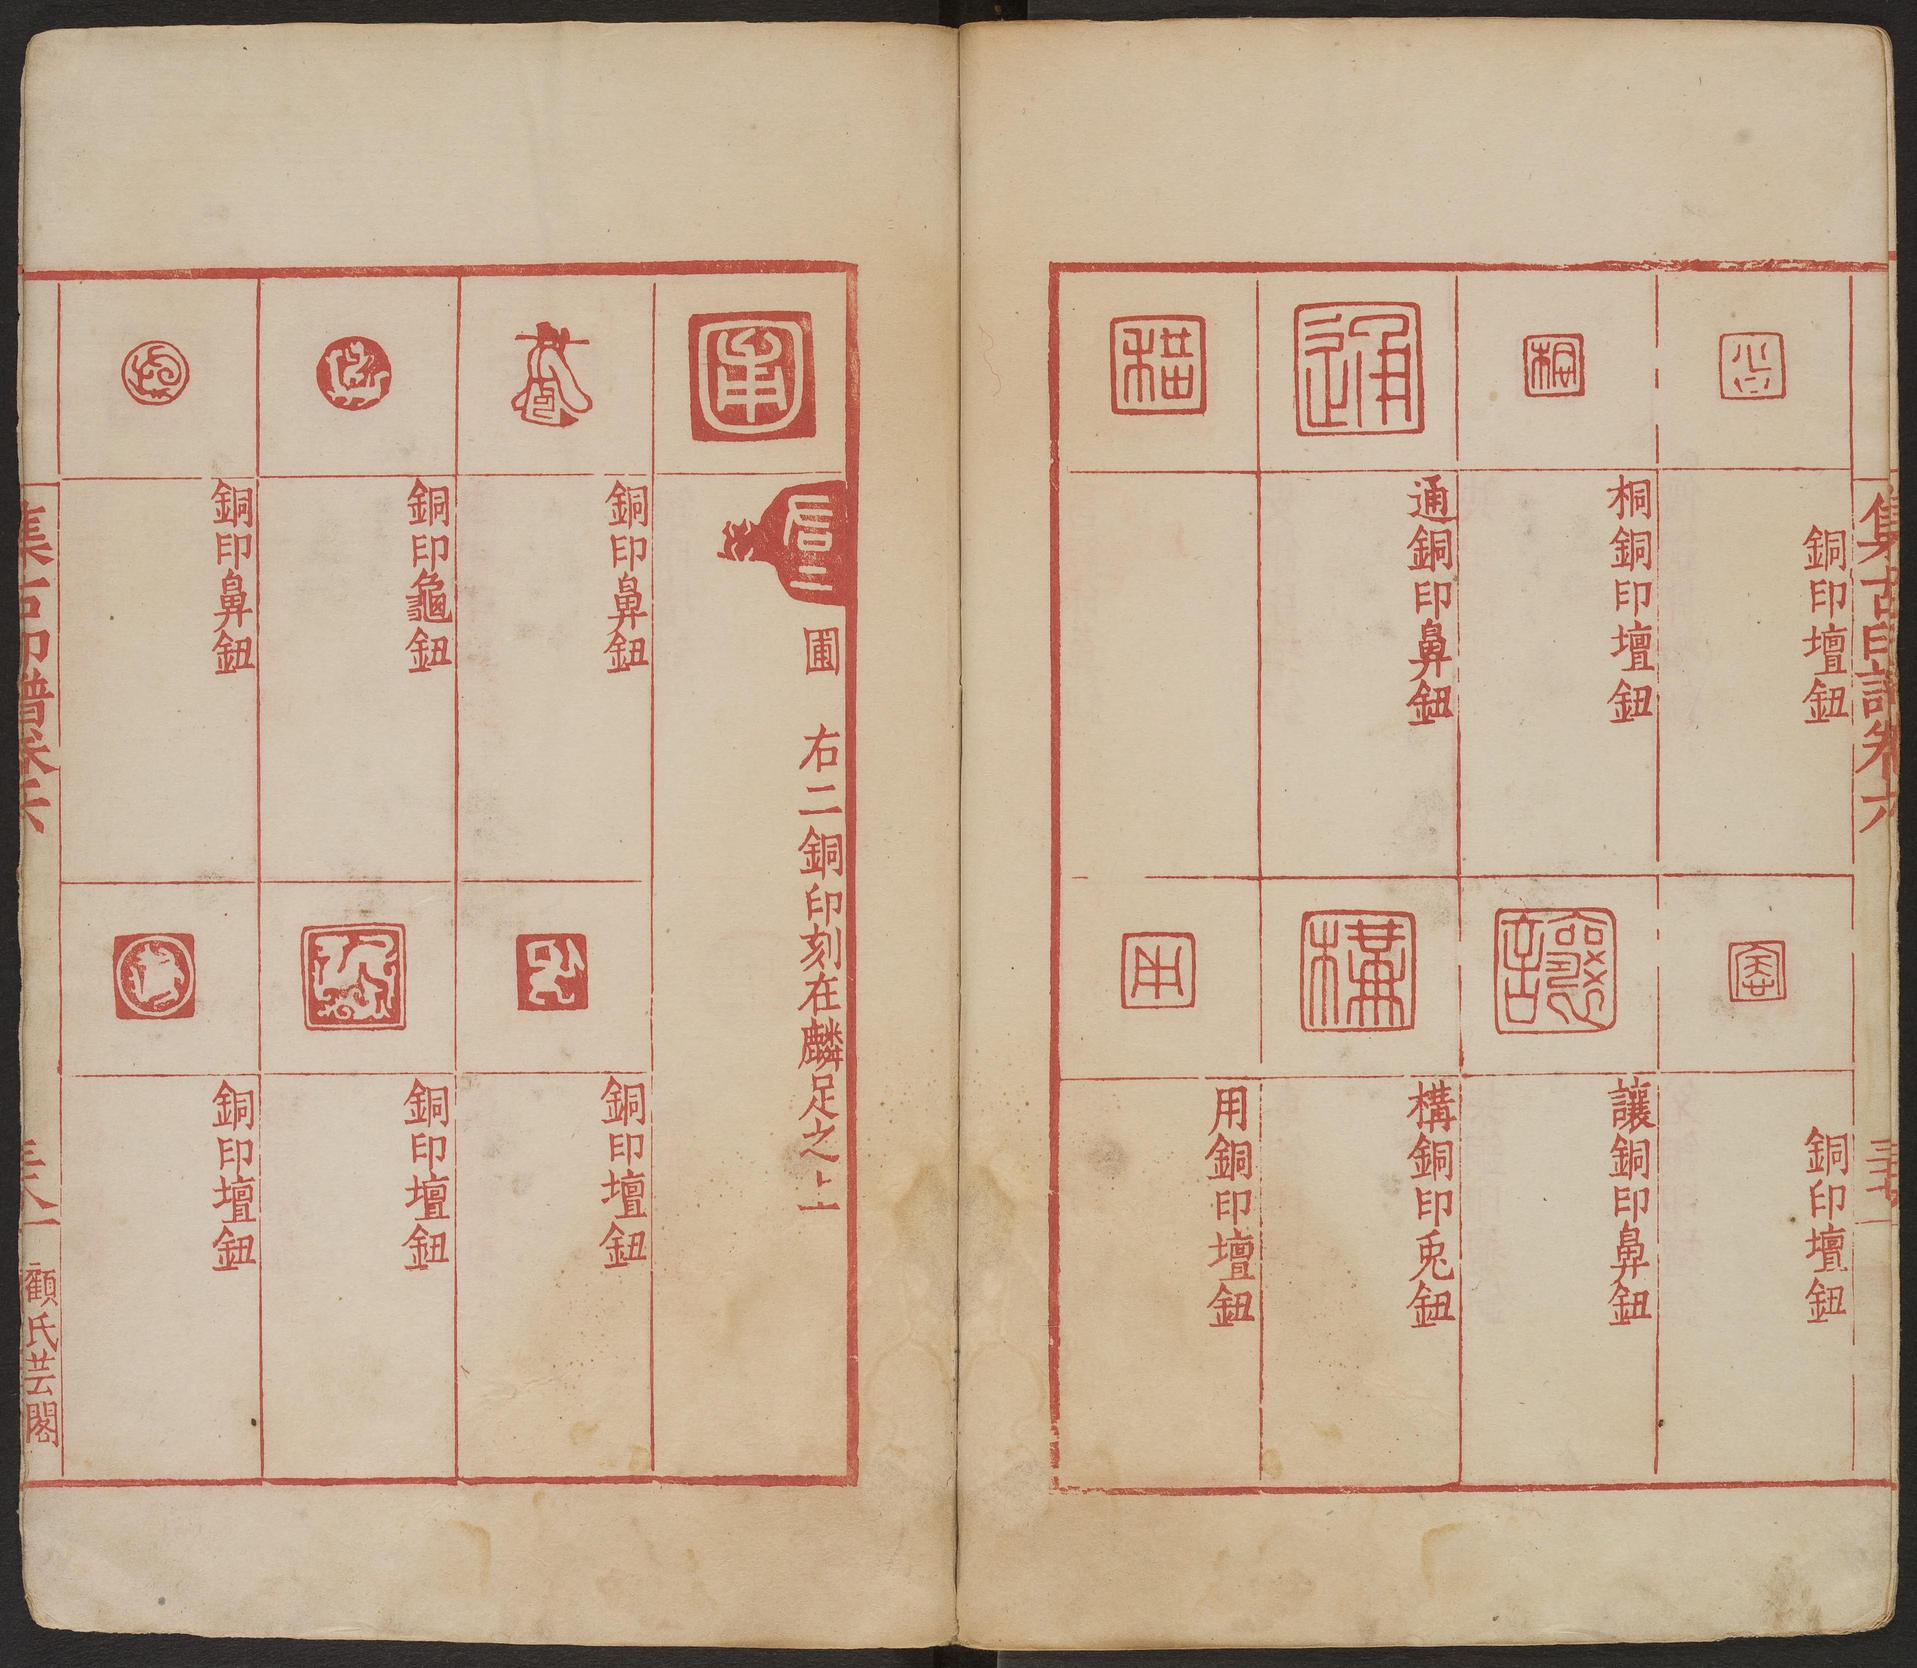 集古印譜卷六
三十七
銅印壇鈕
銅印壇鈕
桐銅印壇鈕
讓銅印鼻鈕
通銅印鼻鈕
構銅印兎鈕
用銅印壇鈕
圃 右二銅印刻在麟足之上
銅印鼻鈕
銅印壇鈕
銅印龜鈕
銅印壇鈕
銅印鼻鈕
銅印壇鈕
集古印譜卷六
三十八
顧氏芸閣